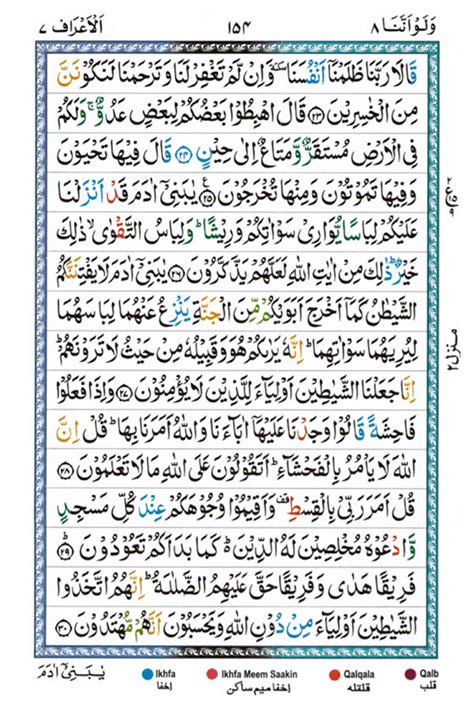 وَلَوْ اَنَّنَا ٨ ١٥٤ اَلْاَعْرَاف ٧
قَالَا رَبَّنَا ظَلَمْنَآ اَنْفُسَنَا سكتة وَاِنْ لَّمْ تَغْفِرْ لَنَا وَتَرْحَمْنَا لَنَكُوْنَنَّ
مِنَ الْخٰسِرِيْنَ ۝٢٣ قَالَ اهْبِطُوْا بَعْضُكُمْ لِبَعْضٍ عَدُوٌّ ۚ وَلَكُمْ
فِى الْاَرْضِ مُسْتَقَرٌّ وَّمَتَاعٌ اِلٰى حِيْنٍ ۝٢٤ قَالَ فِيْهَا تَحْيَوْنَ
وَفِيْهَا تَمُوْتُوْنَ وَمِنْهَا تُخْرَجُوْنَ ۝٢٥ يٰبَنِىْٓ اٰدَمَ قَدْ اَنْزَلْنَا
عَلَيْكُمْ لِبَاسًا يُّوَارِىْ سَوْاٰتِكُمْ وَرِيْشًا ؕ وَلِبَاسُ التَّقْوٰى ۙ ذٰلِكَ
خَيْرٌ ؕ ذٰلِكَ مِنْ اٰيٰتِ اللّٰهِ لَعَلَّهُمْ يَذَّكَّرُوْنَ ۝٢٦ يٰبَنِىْٓ اٰدَمَ لَا يَفْتِنَنَّكُمُ
الشَّيْطٰنُ كَمَآ اَخْرَجَ اَبَوَيْكُمْ مِّنَ الْجَنَّةِ يَنْزِعُ عَنْهُمَا لِبَاسَهُمَا
لِيُرِيَهُمَا سَوْاٰتِهِمَا ؕ اِنَّهٗ يَرٰىكُمْ هُوَ وَقَبِيْلُهٗ مِنْ حَيْثُ لَا تَرَوْنَهُمْ ؕ
اِنَّا جَعَلْنَا الشَّيٰطِيْنَ اَوْلِيَآءَ لِلَّذِيْنَ لَا يُؤْمِنُوْنَ ۝٢٧ وَاِذَا فَعَلُوْا
فَاحِشَةً قَالُوْا وَجَدْنَا عَلَيْهَآ اٰبَآءَنَا وَاللّٰهُ اَمَرَنَا بِهَا ؕ قُلْ اِنَّ
اللّٰهَ لَا يَاْمُرُ بِالْفَحْشَآءِ ؕ اَتَقُوْلُوْنَ عَلَى اللّٰهِ مَا لَا تَعْلَمُوْنَ ۝٢٨
قُلْ اَمَرَ رَبِّىْ بِالْقِسْطِ قف وَاَقِيْمُوْا وُجُوْهَكُمْ عِنْدَ كُلِّ مَسْجِدٍ
وَّادْعُوْهُ مُخْلِصِيْنَ لَهُ الدِّيْنَ ؕ كَمَا بَدَاَكُمْ تَعُوْدُوْنَ ۝٢٩
فَرِيْقًا هَدٰى وَفَرِيْقًا حَقَّ عَلَيْهِمُ الضَّلٰلَةُ ؕ اِنَّهُمُ اتَّخَذُوا
الشَّيٰطِيْنَ اَوْلِيَآءَ مِنْ دُوْنِ اللّٰهِ وَيَحْسَبُوْنَ اَنَّهُمْ مُّهْتَدُوْنَ ۝٣٠
منزل ٢
يٰبَنِىْٓ اٰدَمَ
Ikhfa Ikhfa Meem Saakin Qalqala Qalb
اخفا اخفا میم ساکن قلقله قلب